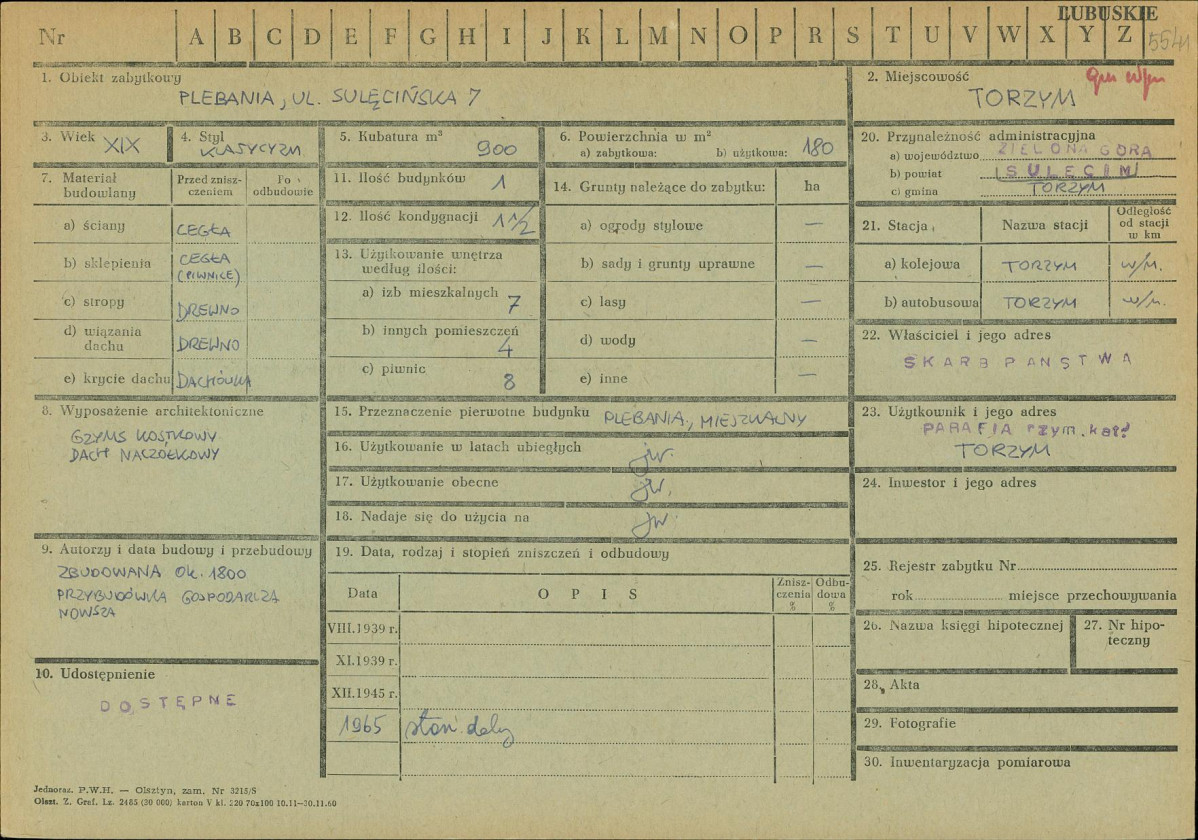 LUBUSKIE
Nr A B C D E F G H I J K L M N O P R S T U V W X Y Z 5541
1. Obiekt zabytkowy
PLEBANIA, UL. SULĘCIŃSKA 7
2. Miejscowość
TORZYM
3. Wiek XIX
4. Styl
KLASYCYZM
5. Kubatura m³
900
6. Powierzchnia w m²
a) zabytkowa: b) użytkowa: 180
20. Przynależność administracyjna
a) województwo ZIELONA GÓRA
b) powiat SULĘCIN
c) gmina TORZYM
7. Materiał budowlany
Przed zniszczeniem
Po odbudowie
a) ściany CEGŁA
b) sklepienia CEGŁA (PIWNICE)
c) stropy DREWNO
d) wiązania dachu DREWNO
e) krycie dachu DACHÓWKA
11. Ilość budynków 1
12. Ilość kondygnacji 1 1/2
13. Użytkowanie wnętrza
według ilości:
a) izb mieszkalnych 7
b) innych pomieszczeń 4
c) piwnic 8
14. Grunty należące do zabytku: ha
a) ogrody stylowe —
b) sady i grunty uprawne —
c) lasy —
d) wody —
e) inne —
21. Stacja Nazwa stacji Odległość od stacji w km
a) kolejowa TORZYM w/m.
b) autobusowa TORZYM w/m.
22. Właściciel i jego adres
SKARB PAŃSTWA
8. Wyposażenie architektoniczne
GZYMS KOSTKOWY
DACH NACZÓŁKOWY
15. Przeznaczenie pierwotne budynku PLEBANIA, MIESZKALNY
16. Użytkowanie w latach ubiegłych jw.
17. Użytkowanie obecne jw.
18. Nadaje się do użycia na jw.
23. Użytkownik i jego adres
PARAFIA rzym. kat.
TORZYM
24. Inwestor i jego adres
9. Autorzy i data budowy i przebudowy
ZBUDOWANA OK. 1800
PRZYBUDÓWKA GOSPODARCZA
NOWSZA
19. Data, rodzaj i stopień zniszczeń i odbudowy
Data OPIS Zniszczenia % Odbudowa %
VIII.1939 r.
XI.1939 r.
XII.1945 r.
1965 stan dobry
25. Rejestr zabytku Nr
rok miejsce przechowywania
26. Nazwa księgi hipotecznej
27. Nr hipoteczny
10. Udostępnienie
DOSTĘPNE
28. Akta
29. Fotografie
30. Inwentaryzacja pomiarowa
Jednoraz. P.W.H. — Olsztyn, zam. Nr 3215/S
Olszt. Z. Graf. Lz. 2485 (20 000) karton V kl. 220 70x100 10.11—30.11.60